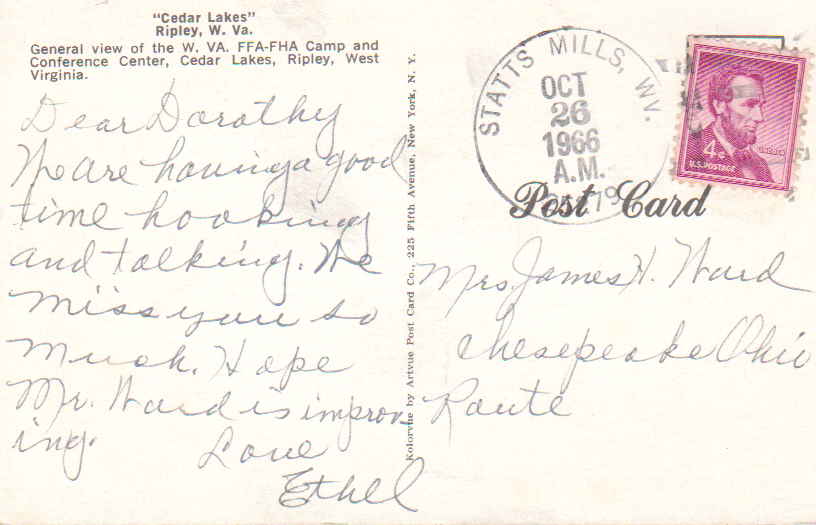 "Cedar Lakes"
Ripley, W. Va.
General view of the W. VA. FFA-FHA Camp and
Conference Center, Cedar Lakes, Ripley, West
Virginia.
Dear Dorothy
We are having a good
time hooking
and talking. We
miss you so
much. Hope
Mr. Ward is improv-
ing.
Love
Ethel
Kolorvue by Artvue Post Card Co., 225 Fifth Avenue, New York, N. Y.
STATTS MILLS, WV.
OCT
26
1966
A.M.
4¢
LINCOLN
U.S. POSTAGE
Post Card
Mrs James H. Ward
Chesepeake Ohio
Route